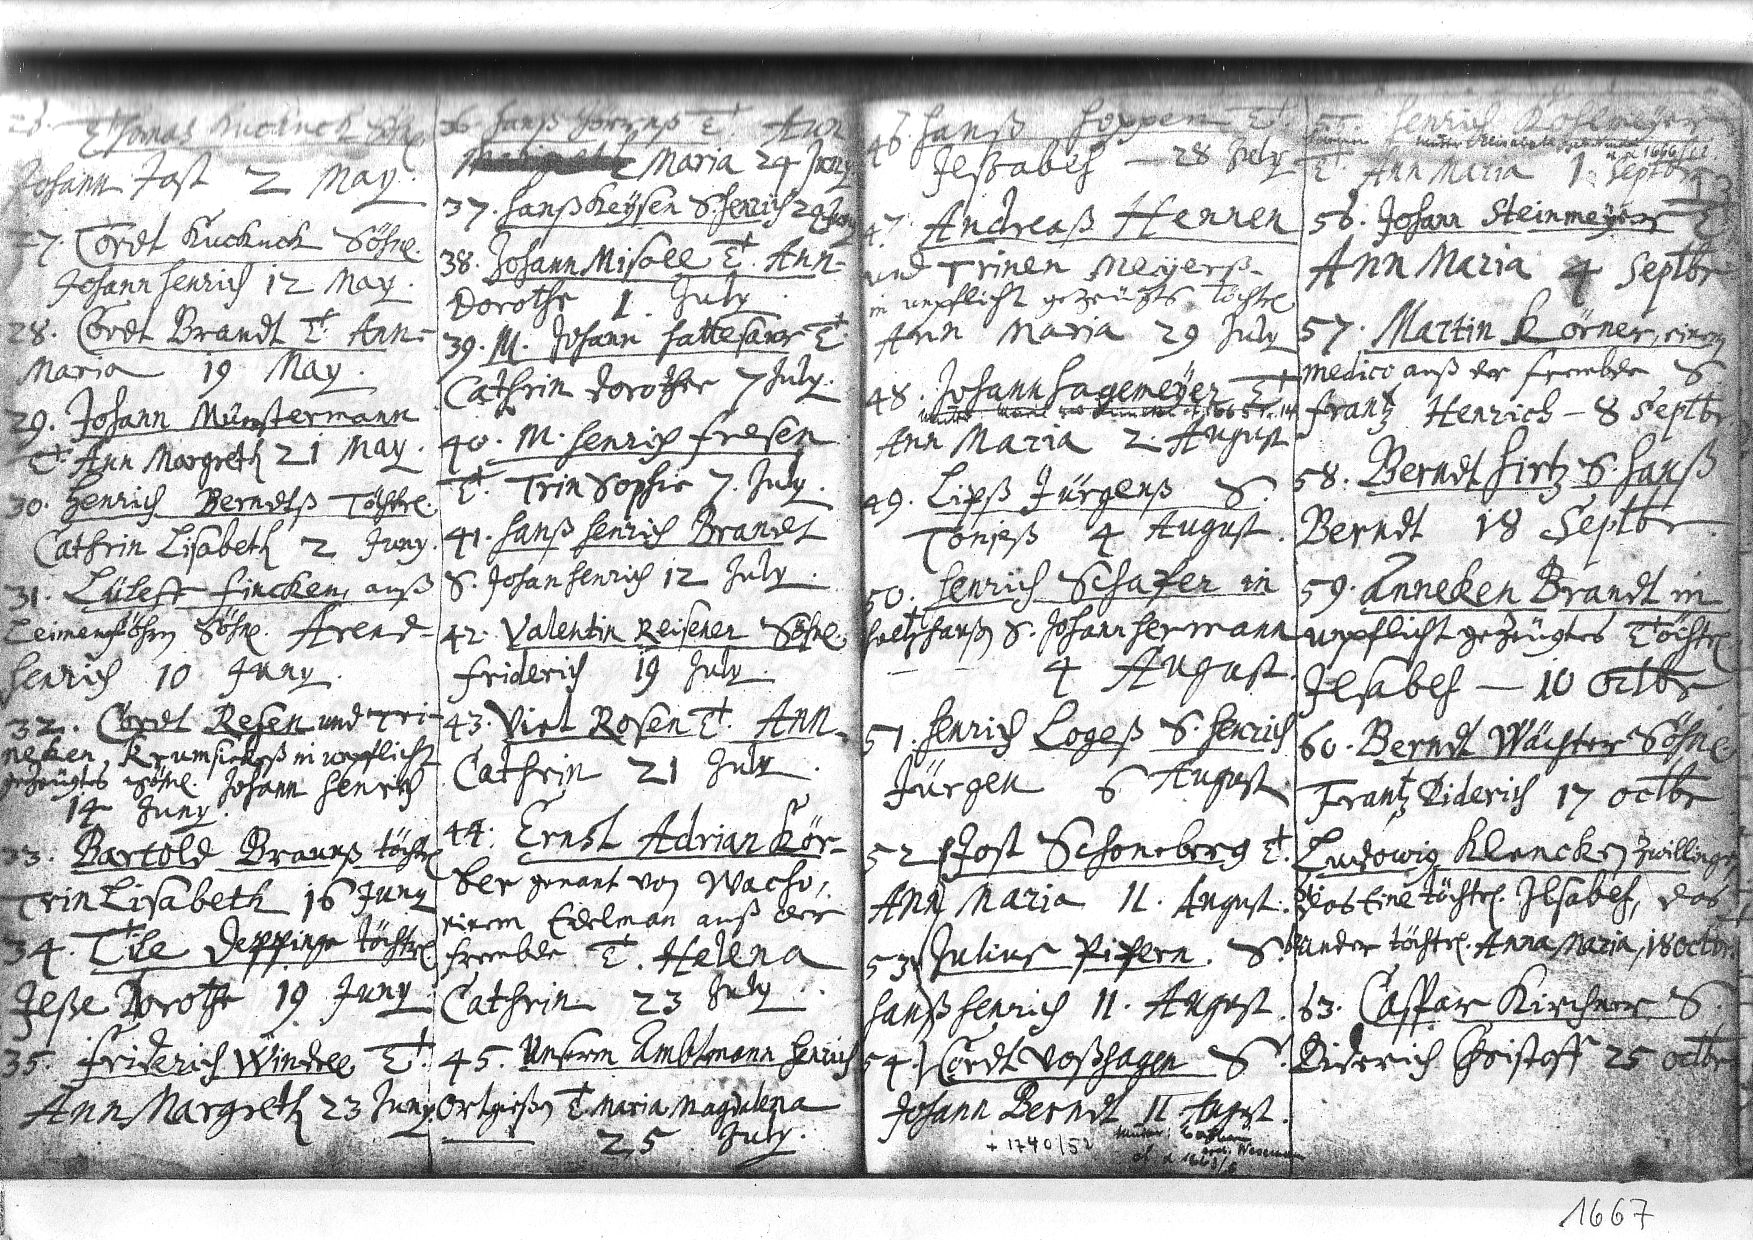 26. Thomas Kuckuck Söhnl.
Johann Jost 2 May.
27. Cordt Kuckuck Söhnl.
Johann Henrich 12 May.
28. Cordt Brandt T. Ann-
Maria 19 May.
29. Johann Münstermann
T. Ann Margreth 21 May.
30. Henrich Berndtß Töchtl.
Cathrin Lisabeth 2 Juny.
31. Lüleff Fincken, auß
Söhnl. Arend-
Henrich 10 Juny.
32. Cordt Resen und Tri-
neken Krumsiekeß in unpflicht
gezeugtes Söhnl. Johann Henrich
14 Juny.
33. Bartold Braunß töchtl.
Trin Lisabeth 16 Juny
34. Tile Deppinge töchtl.
Ilße Dorothe 19 Juny
35. Friderich Windel T.
Ann Margreth 23 Juny.
36. Hanß Görrieß T. Ann
Maria 24 Juny
37. Hanß Keysen S. Henrich 29 Juny
38. Johann Misole T. Ann-
Dorothe 1. July.
39. M. Johann Hattesaur T.
Cathrin Dorothee 7 July.
40. M. Henrich Fresen
T. Trin Sophie 7. July.
41. Hanß Henrich Brandt
S. Johan Henrich 12 July.
42. Valentin Reisener Söhnl.
Friderich 19 July
43. Viet Rosen T. Ann
Cathrin 21 July.
44. Ernst Adrian Kör-
ber genant von Wacho,
einem Edelman auß der
frembde T. Helena
Cathrin 23 July.
45. Unserm Ambtmann Henrich
Ortgießen T. Maria Magdalena
25 July.
46. Hanß Hoppen T.
Ilßabeh — 28 July
47. Andreaß Hennen
und Trinen Meyerß
in unpflicht gezeugts Töchtl.
Ann Maria 29 July
48. Johann Hagemeyer T.
Ann Maria 2. August
49. Lipß Jürgenß S.
Tönjeß 4 August.
50. Henrich Schafer in
S. Johann Hermann
4 August.
51. Henrich Logeß S. Henrich
Jürgen 6 August.
52 Jost Schoneberg T.
Ann Maria 11. August.
53. Julius Pifern. S.
Hanß Henrich 11. August.
54. Cordt Voßhagen S.
Johann Berndt 11 August.
+ 1740/52
55. Henrich Kohlmeyer
T. Ann Maria 1 Septbr
56. Johann Steinmeyer T.
Ann Maria 4 Septbr
57. Martin Körner, einem
Medico auß der frembde S.
Frantz Henrich — 8 Septbr.
58. Berndt Hirtz S. Hanß
Berndt 18 Septbr
59. Anneken Brandt in
unpflicht gezeugtes Töchtl.
Ilsabeh — 10 Octbr
60. Berndt Wächter Söhnl.
Frantz Diderich 17 Octbr
Ludowig Klencken Zwillinge
das Eine töchtl. Ilsabeh, das
ander töchtl. Anna Maria, 18 Octbr.
63. Casspar Kirchner S.
Diderich Christoff 25 Octbr
1667